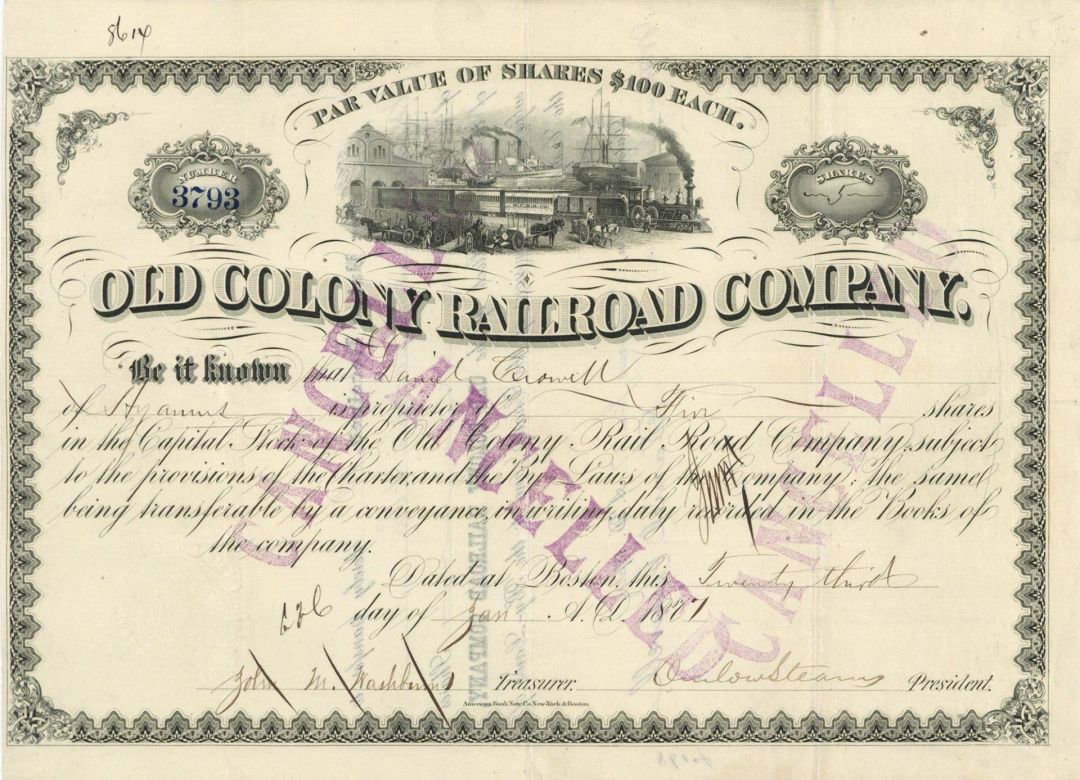 8614
PAR VALUE OF SHARES $100 EACH.
NUMBER
3793
SHARES
5
OLD COLONY RAILROAD COMPANY.
Be it known that Daniel Crowell
of Hyannis is proprietor of Five shares
in the Capital Stock of the Old Colony Rail Road Company, subject
to the provisions of the Charter, and the By-Laws of the Company; the same
being transferable by a conveyance in writing, duly recorded in the Books of
the company.
Dated at Boston, this Twenty third
day of Jan A.D. 1877
John M. Washburn Treasurer. Onslow Stearns President.
American Bank Note Co. New-York & Boston.
CANCELLED
CANCELLED
CANCELLED